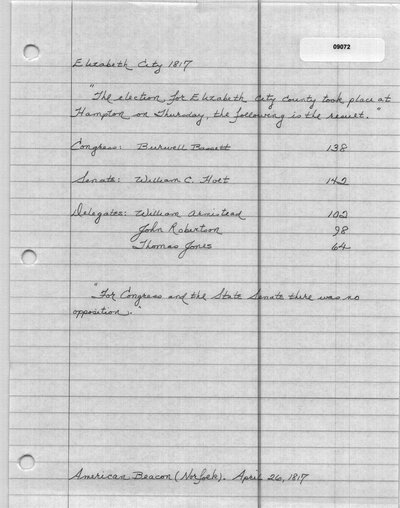 09072
Elizabeth City 1817
"The election for Elizabeth City County took place at
Hampton on Thursday, the following is the result."
Congress: Burwell Bassett 138
Senate: William C. Holt 142
Delegates: William Armistead 102
John Robertson 98
Thomas Jones 64
"For Congress and the State Senate there was no
opposition."
American Beacon (Norfolk). April 26, 1817